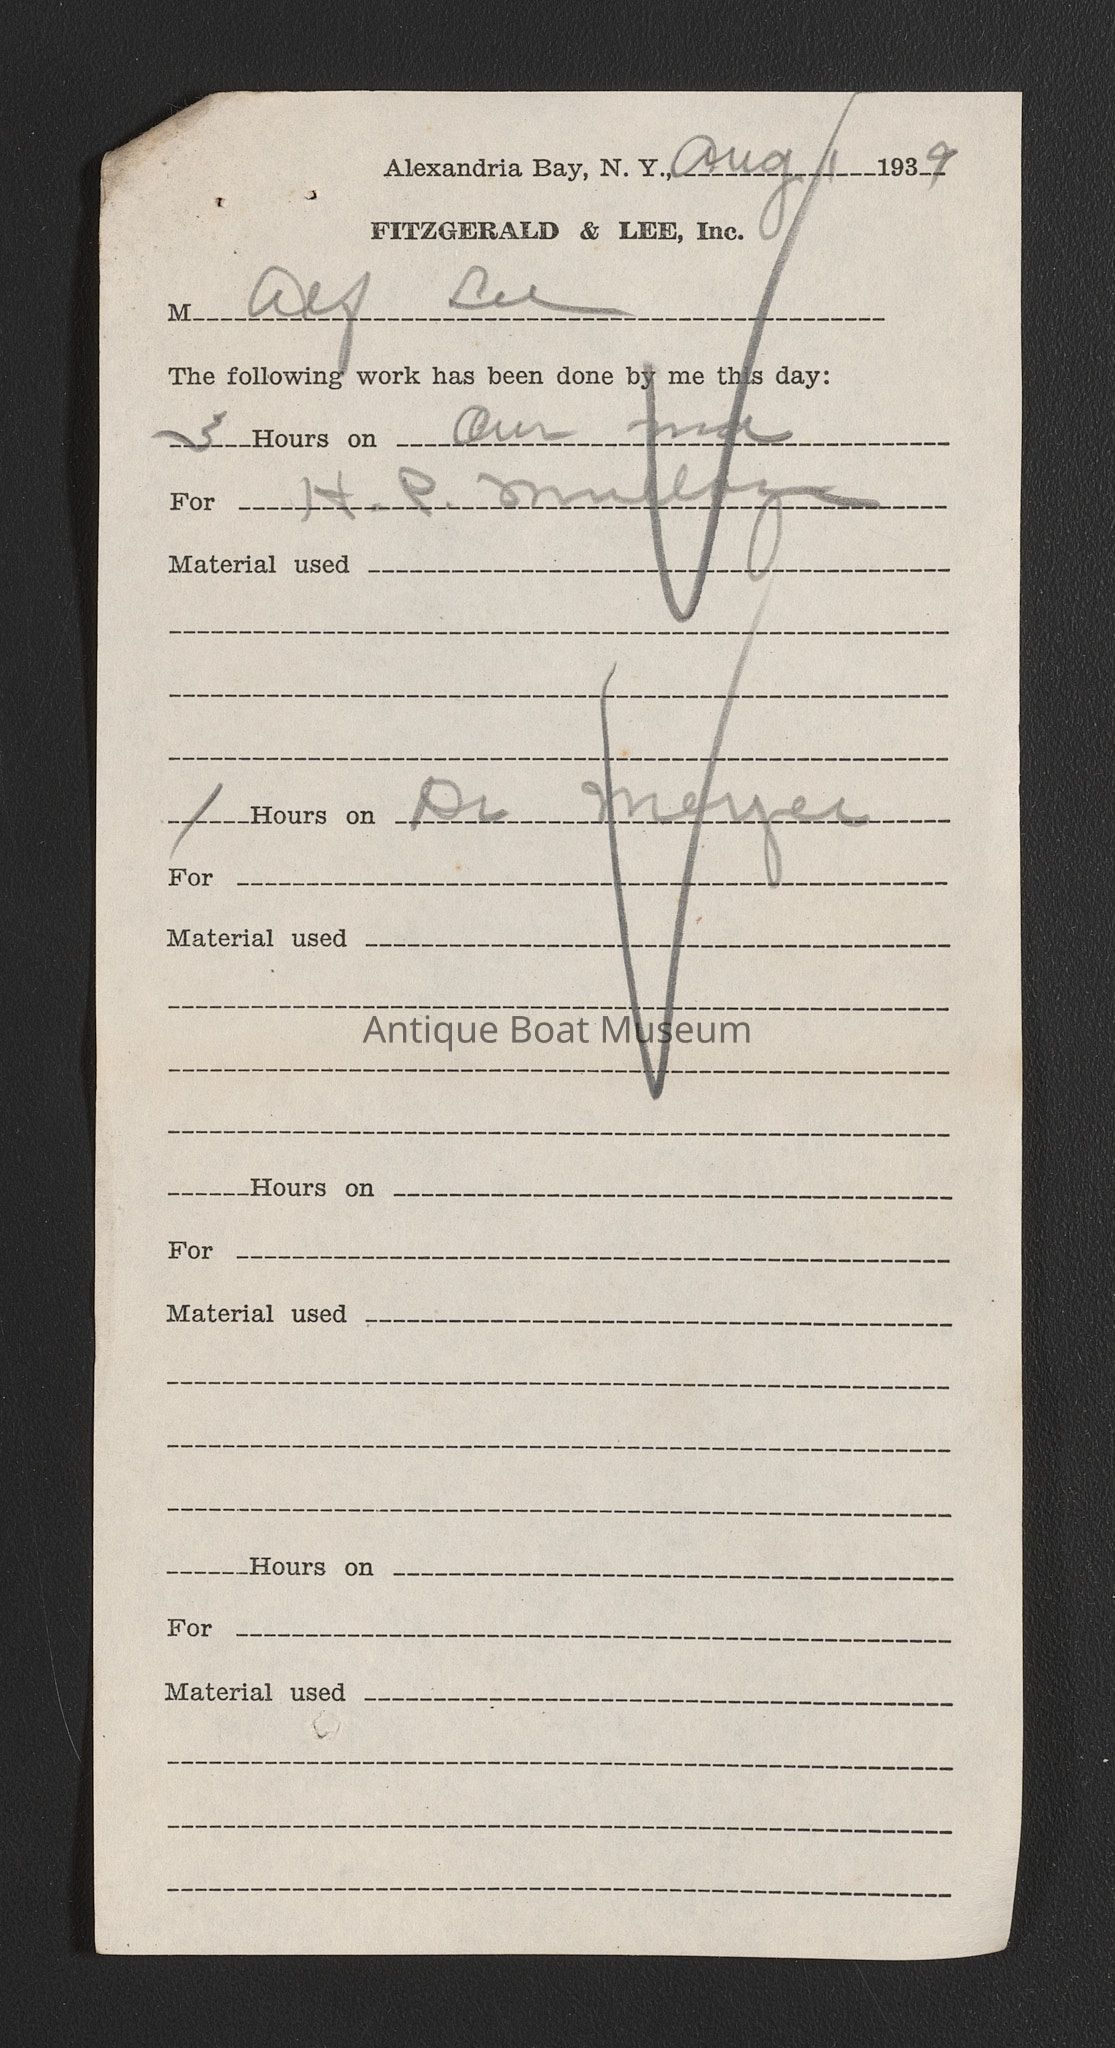 Alexandria Bay, N. Y., Aug 1 1939
FITZGERALD & LEE, Inc.
M Alf Lee
The following work has been done by me this day:
3 Hours on Our
For H. P.
Material used
1 Hours on Dr Meryer
For
Material used
Antique Boat Museum
Hours on
For
Material used
Hours on
For
Material used